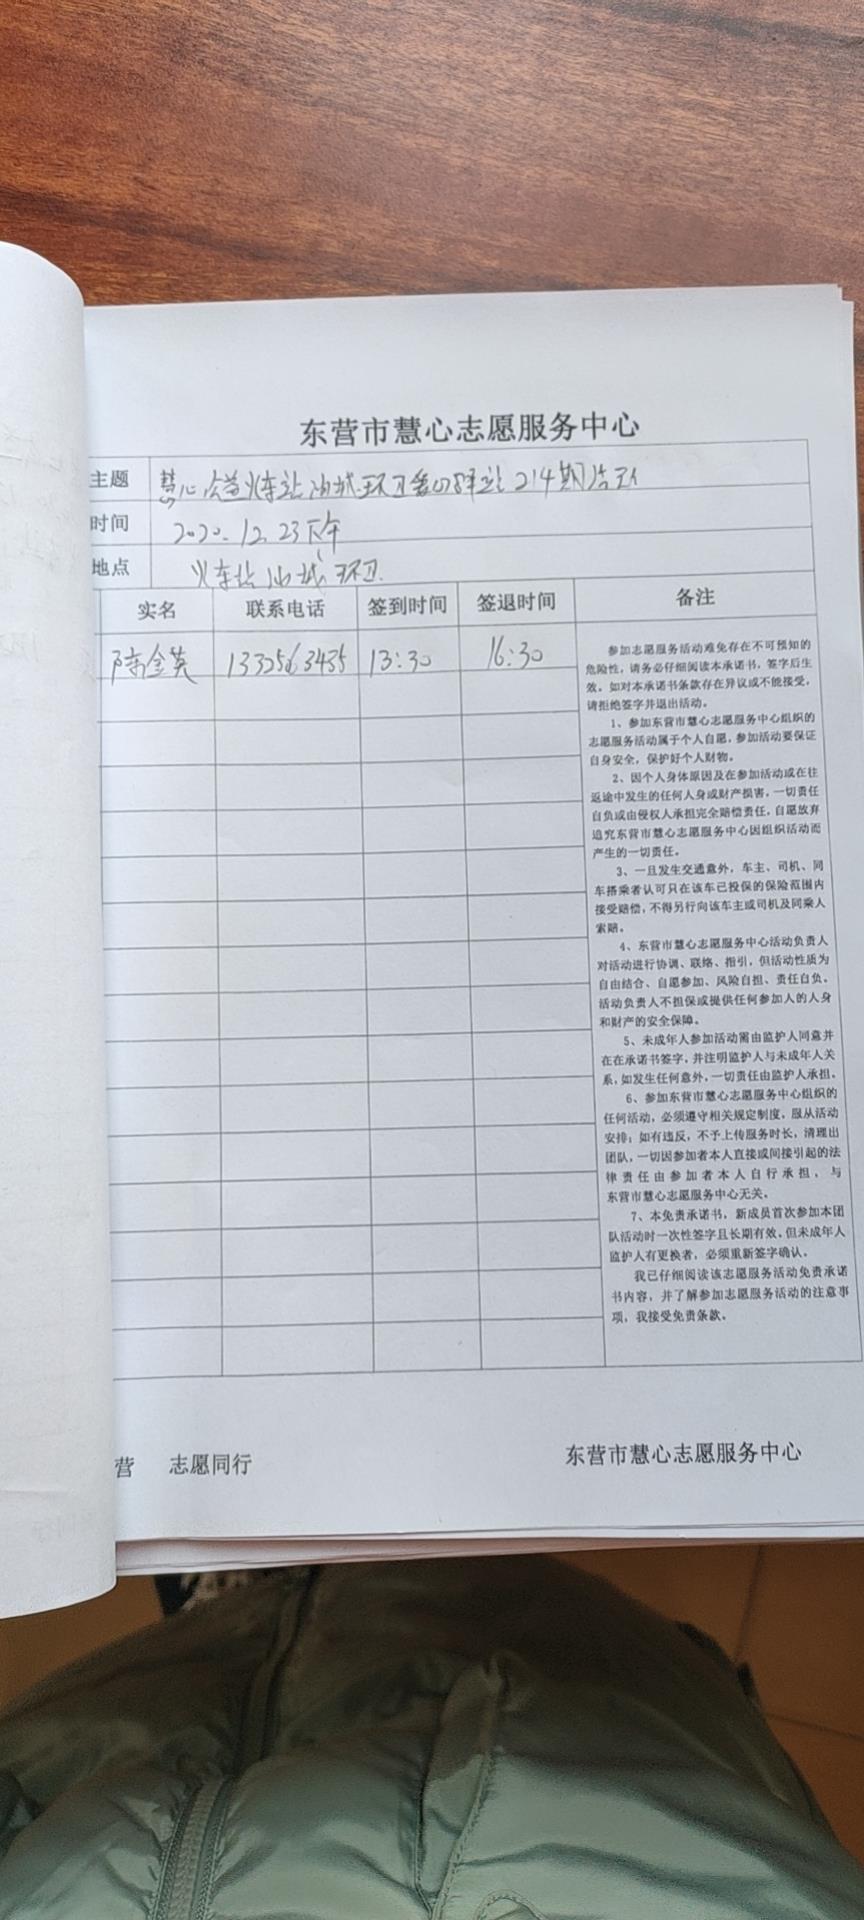 东营市慧心志愿服务中心
主题 慧心公益火车站油城环卫爱心驿站214期活动
时间 2020.12.23下午
地点 火车站油城环卫
实名 联系电话 签到时间 签退时间 备注
陈金英 13325063435 13:30 16:30
参加志愿服务活动难免存在不可预知的
危险性,请务必仔细阅读本承诺书,签字后生
效。如对本承诺书条款存在异议或不能接受,
请拒绝签字并退出活动。
1、参加东营市慧心志愿服务中心组织的
志愿服务活动属于个人自愿,参加活动要保证
自身安全,保护好个人财物。
2、因个人身体原因及在参加活动或在往
返途中发生的任何人身或财产损害,一切责任
自负或由侵权人承担完全赔偿责任,自愿放弃
追究东营市慧心志愿服务中心因组织活动而
产生的一切责任。
3、一旦发生交通意外,车主、司机、同
车搭乘者认可只在该车已投保的保险范围内
接受赔偿,不得另行向该车主或司机及同乘人
索赔。
4、东营市慧心志愿服务中心活动负责人
对活动进行协调、联络、指引,但活动性质为
自由结合、自愿参加、风险自担、责任自负。
活动负责人不担保或提供任何参加人的人身
和财产的安全保障。
5、未成年人参加活动需由监护人同意并
在在承诺书签字,并注明监护人与未成年人关
系,如发生任何意外,一切责任由监护人承担。
6、参加东营市慧心志愿服务中心组织的
任何活动,必须遵守相关规定制度,服从活动
安排;如有违反,不予上传服务时长,清理出
团队,一切因参加者本人直接或间接引起的法
律责任由参加者本人自行承担,与
东营市慧心志愿服务中心无关。
7、本免责承诺书,新成员首次参加本团
队活动时一次性签字且长期有效。但未成年人
监护人有更换者,必须重新签字确认。
我已仔细阅读该志愿服务活动免责承诺
书内容,并了解参加志愿服务活动的注意事
项,我接受免责条款。
营 志愿同行 东营市慧心志愿服务中心